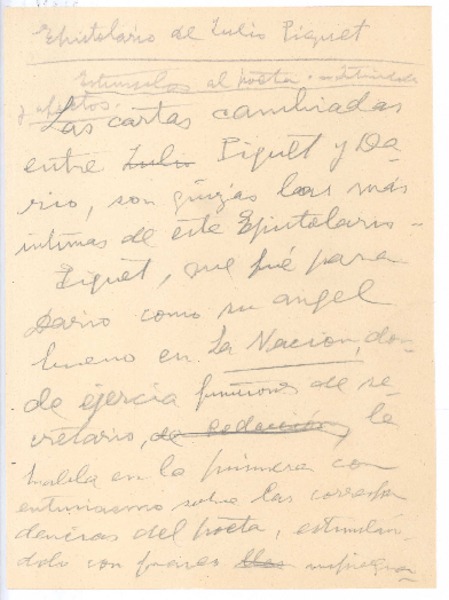 Epistolario de Julio Piquet
Estímulos al poeta
y afectos.
Las cartas cambiadas
entre Julio Piquet y Da-
rio, son quizás las más
íntimas de este Epistolario -
Piquet, que fué para
Dario como su angel
bueno en La Nacion, don-
de ejercia funciones de se-
cretario, de Redacción, le
habla en la primera con
entusiasmo sobre las correspon
dencias del poeta, estimulán-
dolo con frases